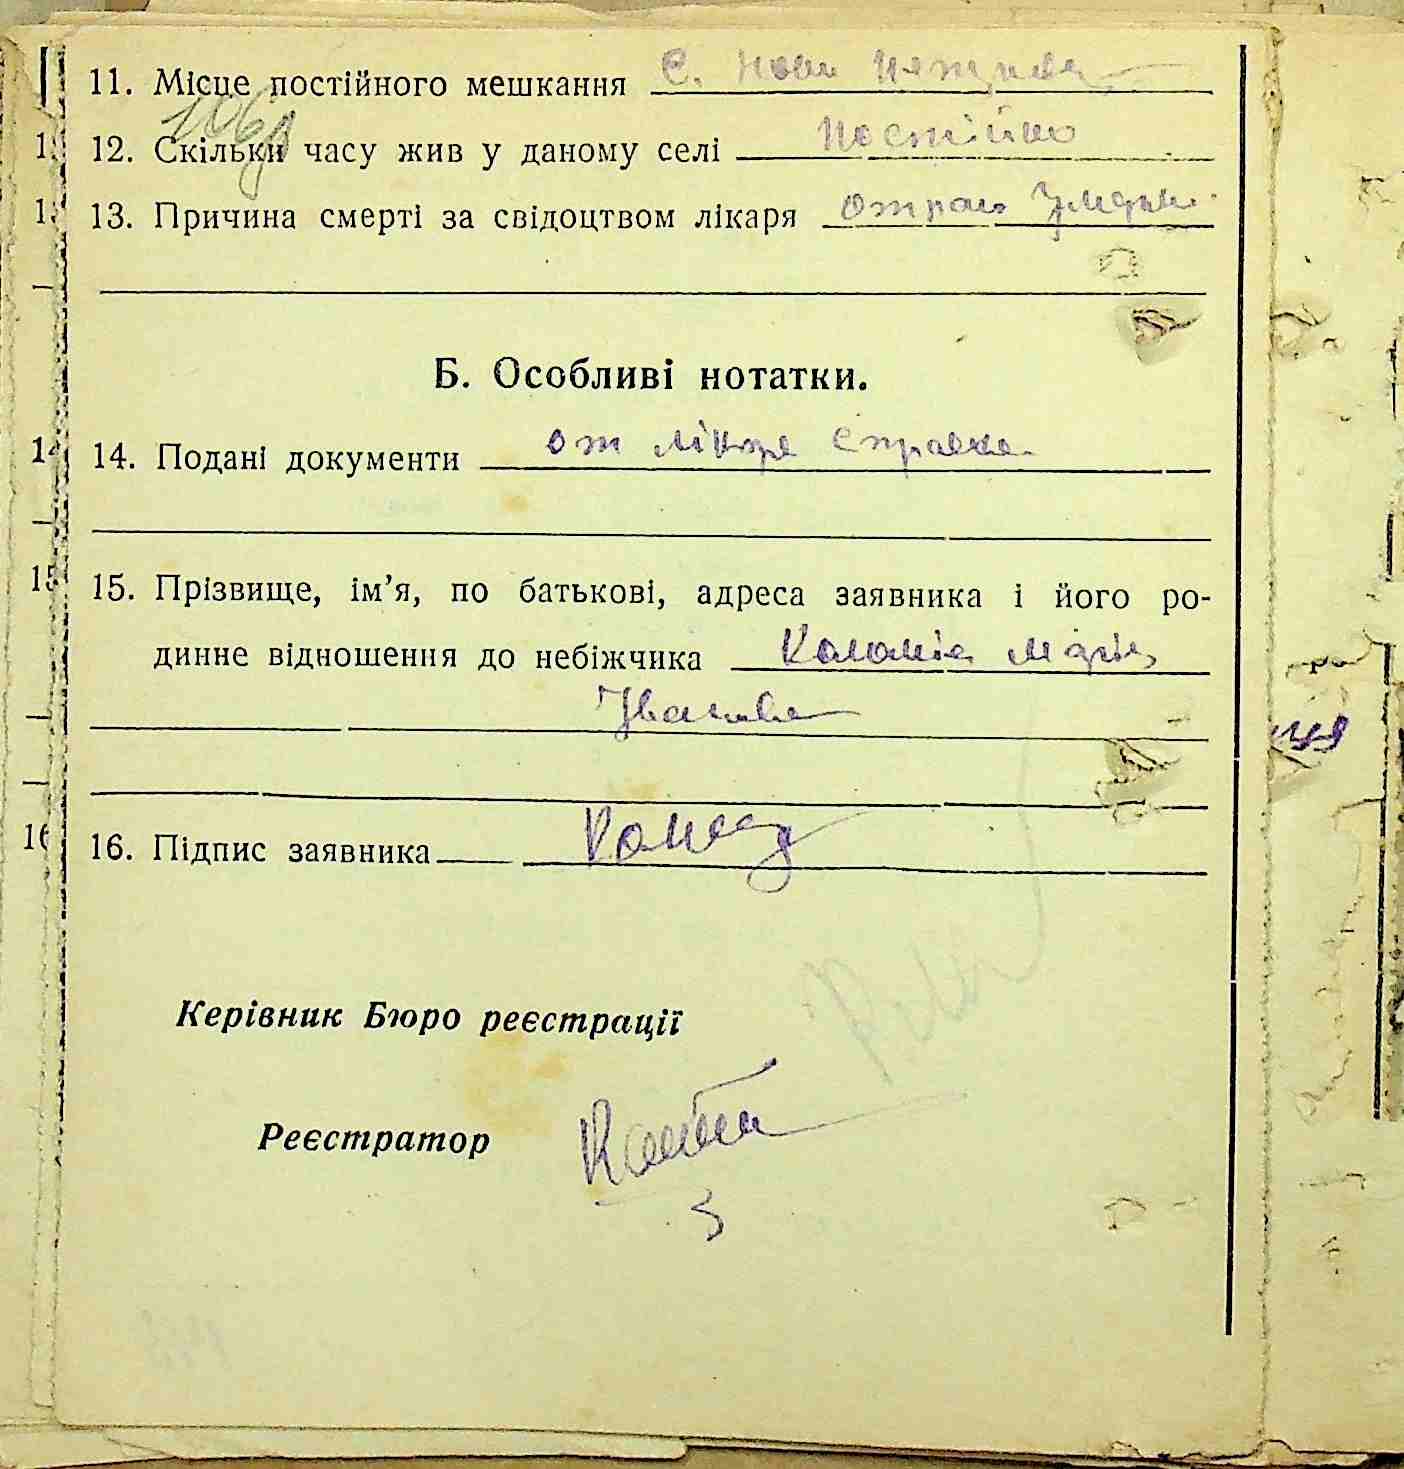 11. Місце постійного мешкання с. Нови
106
12. Скільки часу жив у даному селі постійно
13. Причина смерті за свідоцтвом лікаря
Б. Особливі нотатки.
14. Подані документи от лікаря справка
15. Прізвище, ім’я, по батькові, адреса заявника і його ро-
динне відношення до небіжчика Коломіец Марія
Ивановна
16. Підпис заявника
Керівник Бюро реєстрації
Реєстратор